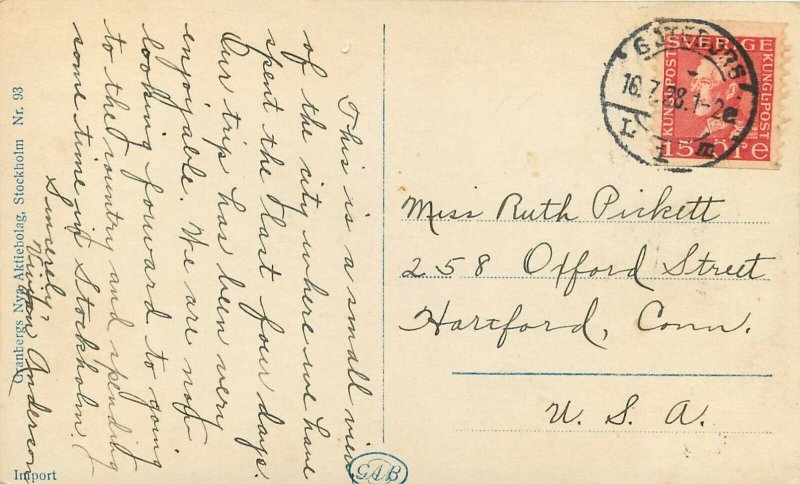 This is a small view
of the city where we have
spent the last four days.
Our trip has been very
enjoyable. We are now
looking forward to going
to the country and spending
some time in Stockholm.
Sincerely,
Anderson
Miss Ruth Pickett
258 Oxford Street
Hartford, Conn.
U. S. A.
GÖTEBORG
16.7.28.1-2e
SVERIGE
KUNGL·POST
KUNGL·POST
15 ÖRE
Granbergs Nya Aktiebolag, Stockholm Nr. 93
Import
GAB